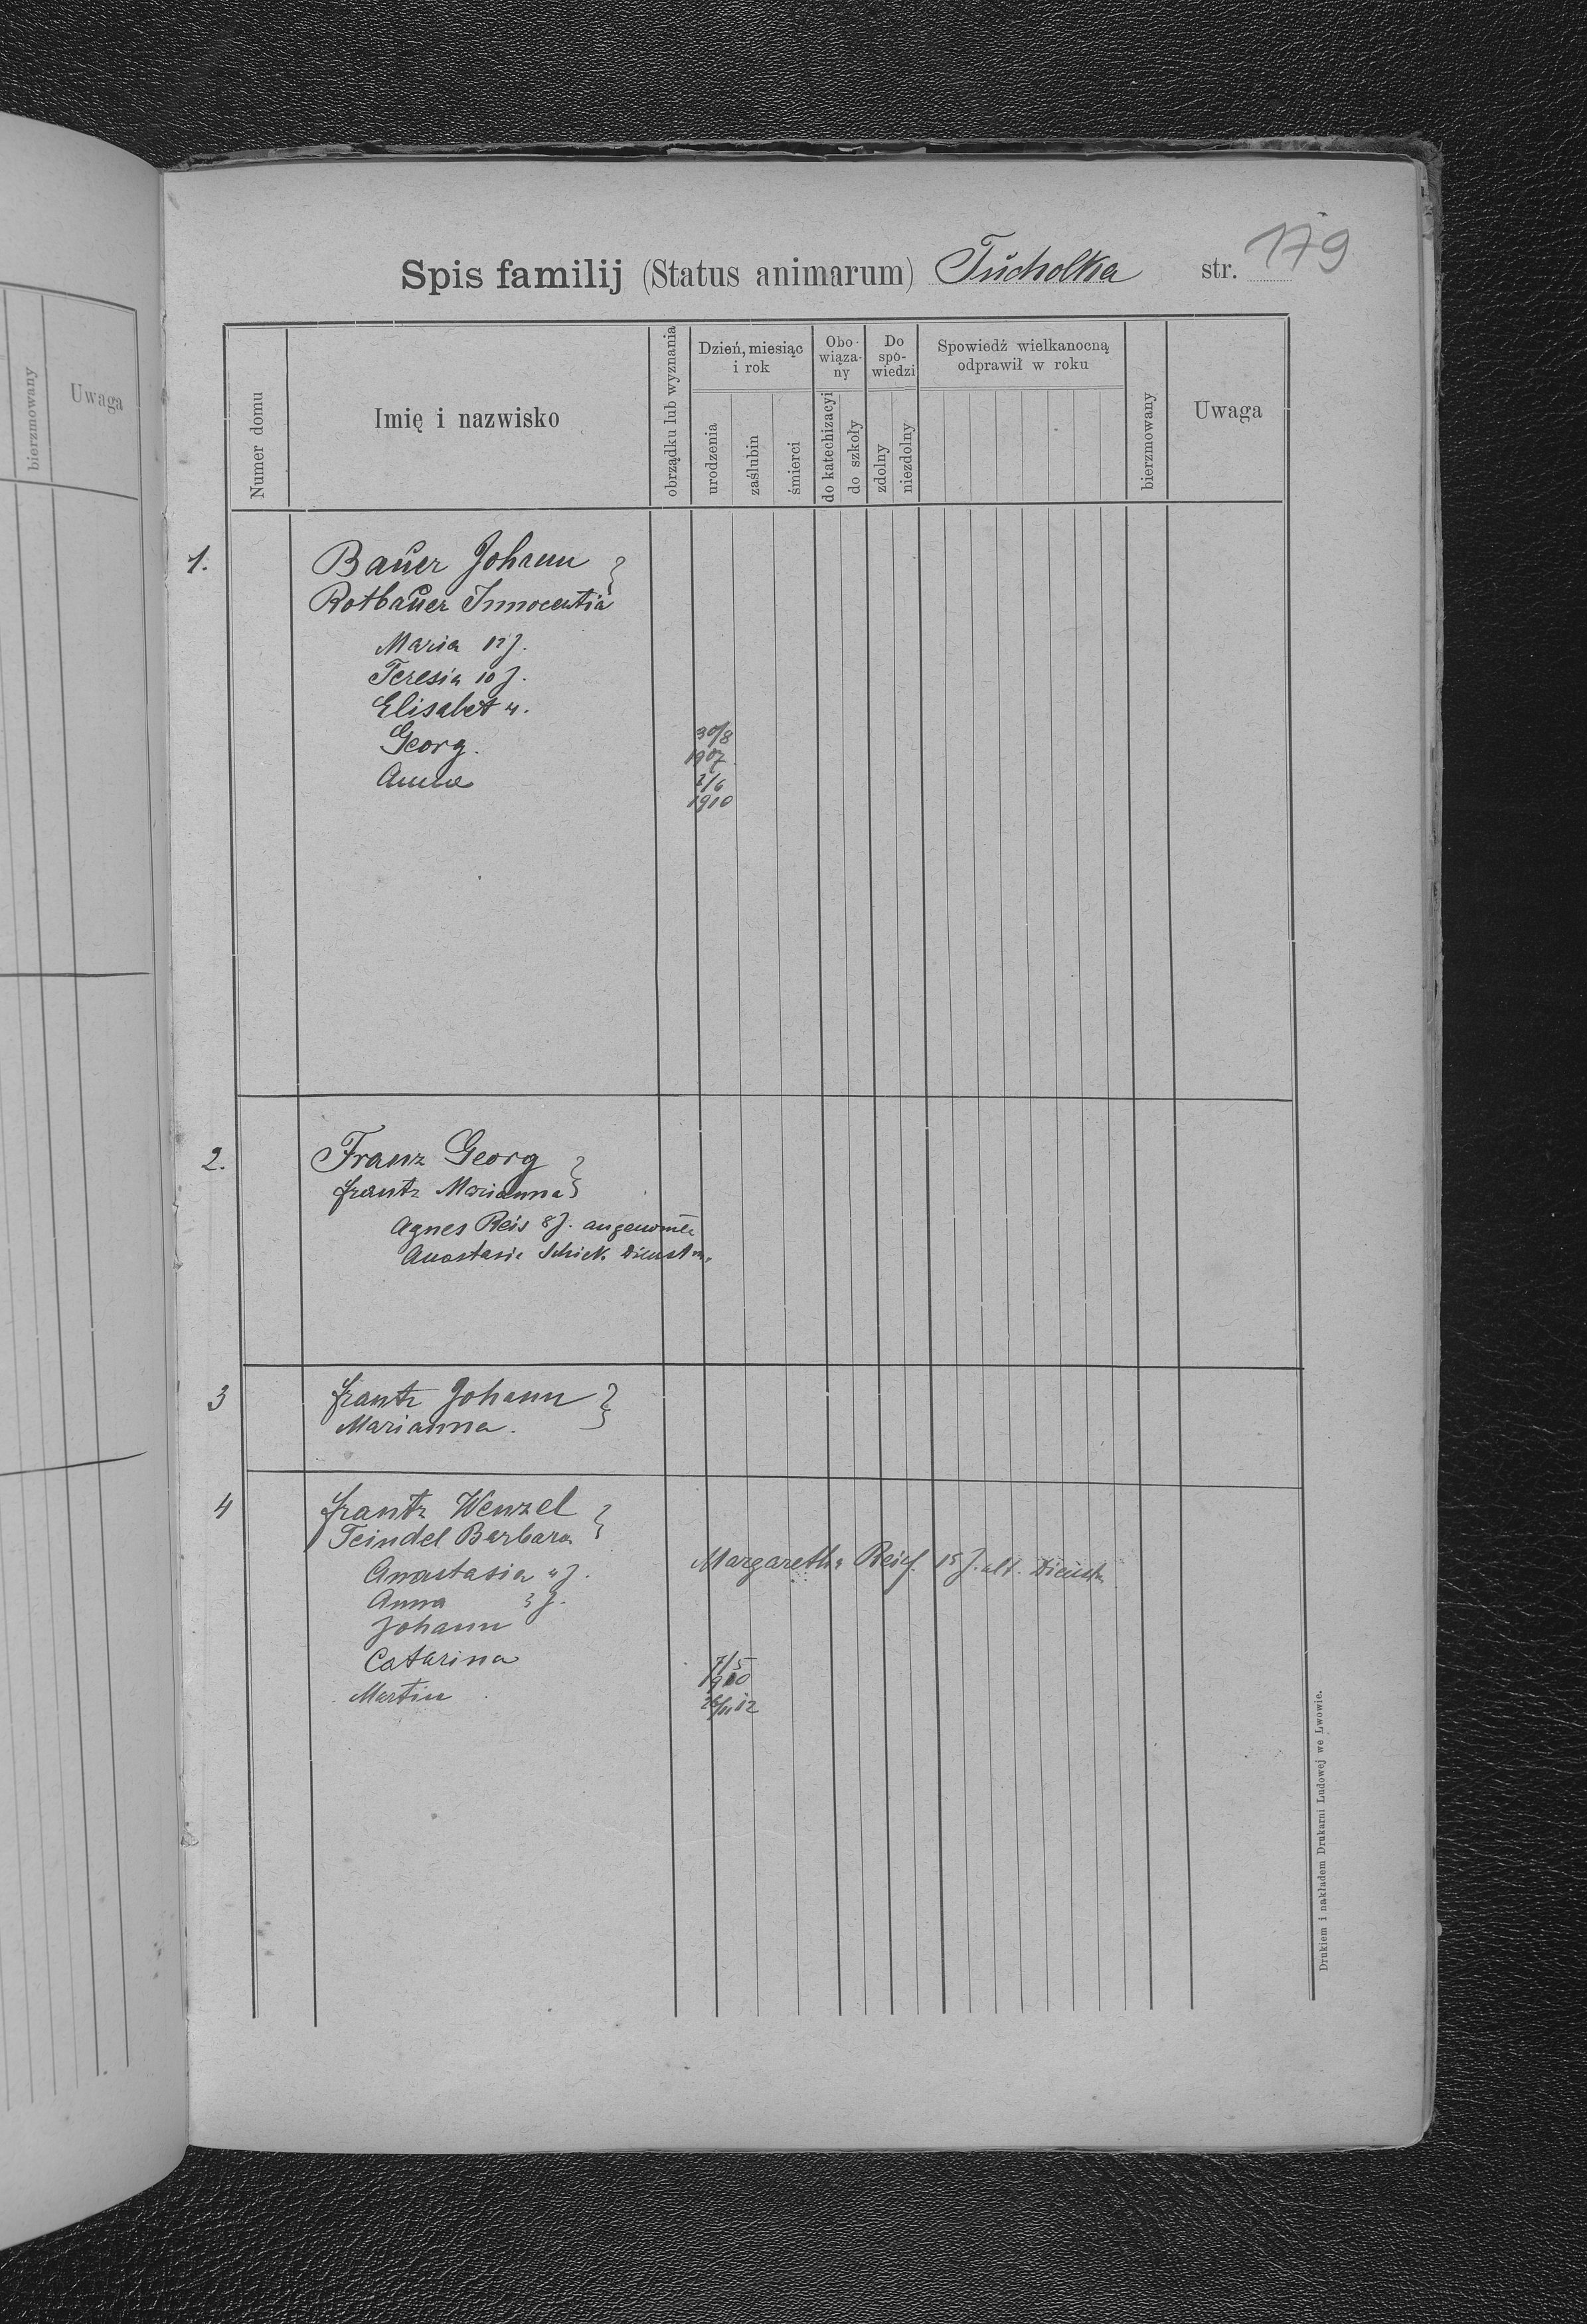 bierzmowany
Uwaga
Spis familij (Status animarum) Tucholka str. 179
Numer domu
Imię i nazwisko
obrządku lub wyznania
Dzień, miesiąc i rok
urodzenia
zaślubin
śmierci
Obo-
wiąza-
ny
do katechizacyi
do szkoły
Do
spo-
wiedzi
zdolny
niezdolny
Spowiedź wielkanocną
odprawił w roku
bierzmowany
Uwaga
1. Bauer Johann
Rotbauer Innocentia
Maria 12 J.
Teresia 10 J.
Elisabet 4.
Georg. 30/8 1907
Anna 2/6 1910
2. Franz Georg
Frantz Marianna
Agnes Reis 8 J. angenomēn
Anastasie Schick Dienstm.
3 Frantz Johann
Marianna.
4 Frantz Wenzel
Teindel Barbara
Anastasia 4 J. Margaretha Reis 15 J. alt.
Anna 3 J.
Johann
Catarina 7/5 1910
Martin 12
Drukiem i nakładem Drukarni Ludowej we Lwowie.